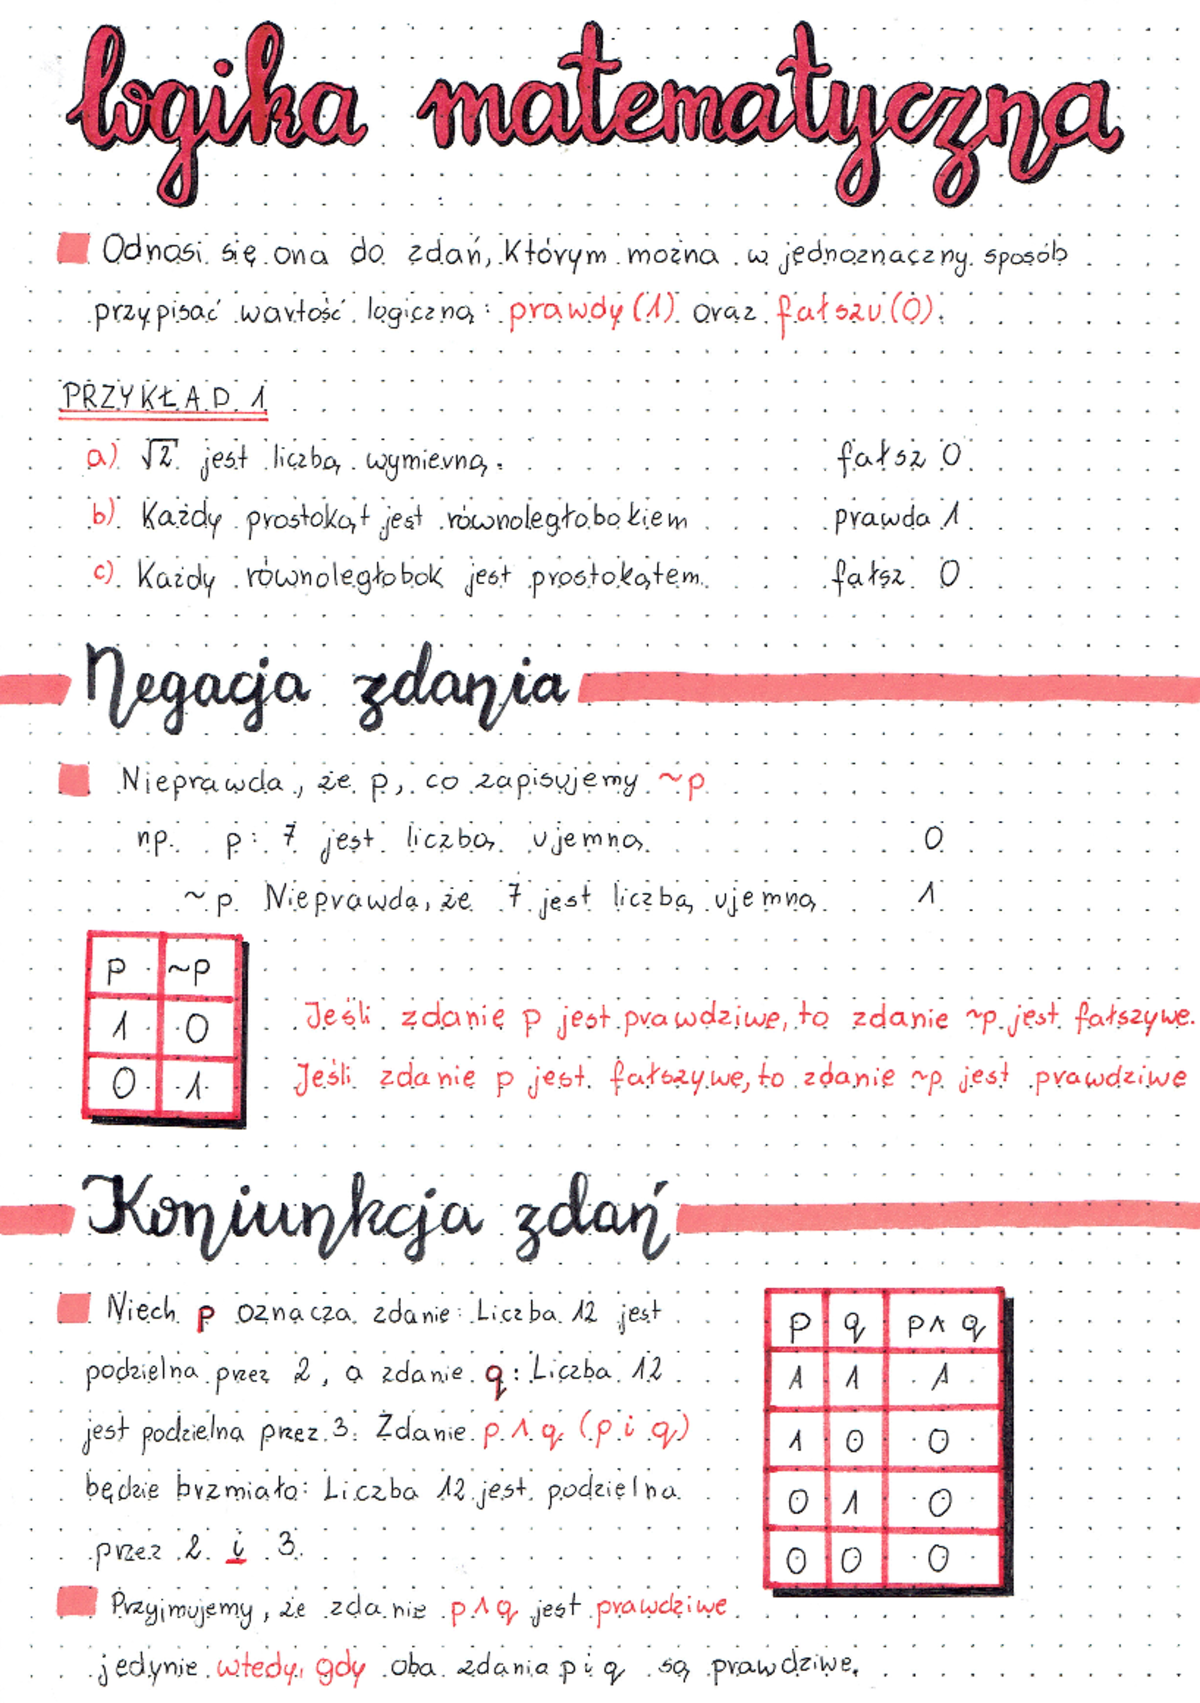 logika matematyczna
Odnosi się ona do zdań, którym można w jednoznaczny sposób
przypisać wartość logiczną: prawdy (1) oraz fałszu (0).
PRZYKŁAD 1
a) √2 jest liczbą wymierną. fałsz 0
b) Każdy prostokąt jest równoległobokiem prawda 1
c) Każdy równoległobok jest prostokątem. fałsz 0
Negacja zdania
Nieprawda, że p, co zapisujemy ~p
np. p: 7 jest liczbą ujemną. 0
~p Nieprawda, że 7 jest liczbą ujemną. 1
p ~p
1 0
0 1
Jeśli zdanie p jest prawdziwe, to zdanie ~p jest fałszywe.
Jeśli zdanie p jest fałszywe, to zdanie ~p jest prawdziwe
Koniunkcja zdań
Niech p oznacza zdanie: Liczba 12 jest
podzielna przez 2, a zdanie q: Liczba 12
jest podzielna przez 3. Zdanie p ∧ q (p i q)
będzie brzmiało: Liczba 12 jest podzielna
przez 2 i 3.
p q p ∧ q
1 1 1
1 0 0
0 1 0
0 0 0
Przyjmujemy, że zdanie p∧q jest prawdziwe
jedynie wtedy, gdy oba zdania p i q są prawdziwe.